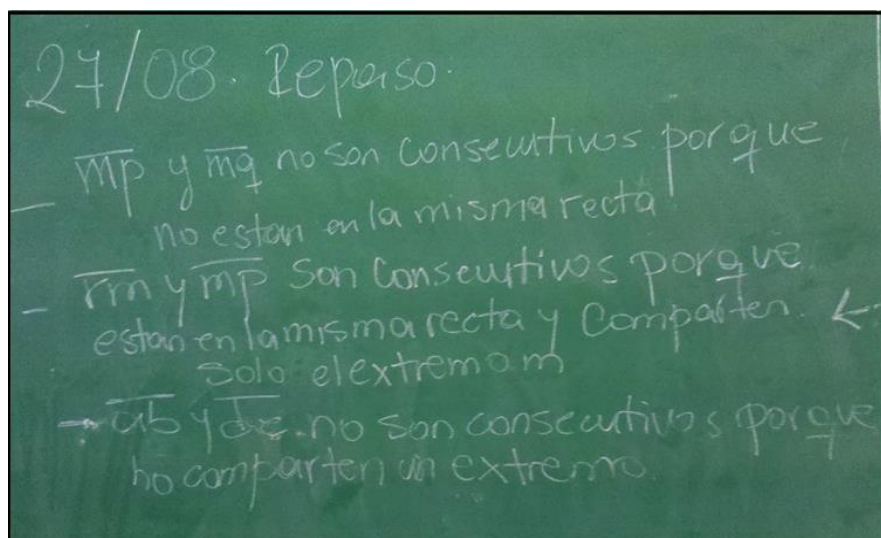 27/08. Repaso.
— m̅p̅ y m̅q̅ no son consecutivos porque
no estan en la misma recta
- r̅m̅ y m̅p̅ son consecutivos porque
estan en la misma recta y comparten ←
solo el extremo m
→ a̅b̅ y d̅c̅ no son consecutivos porque
no comparten un extremo